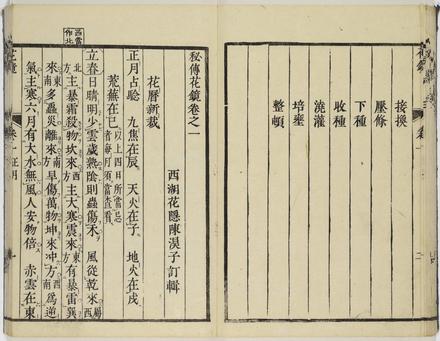 接換
壓條
下種
收種
澆灌
培壅
整頓
秘傳花鏡卷之一
西湖花隱陳淏子訂輯
花曆新栽
正月占驗 九焦在辰 天火在子 地火在戌
荒蕪在巳 以上四日所當忌者每月須當查看
立春日晴明少雲歲熟陰則蟲傷禾 風從乾來屬西
北方主暴霜殺物坎來北方主大寒震來東方有暴雷巽
來東南多蟲災離來南方旱傷萬物坤來冲方西南為逆
氣主寒六月有大水無風人安物倍 赤雲在東
西當作北
花鏡
卷一 正月
一